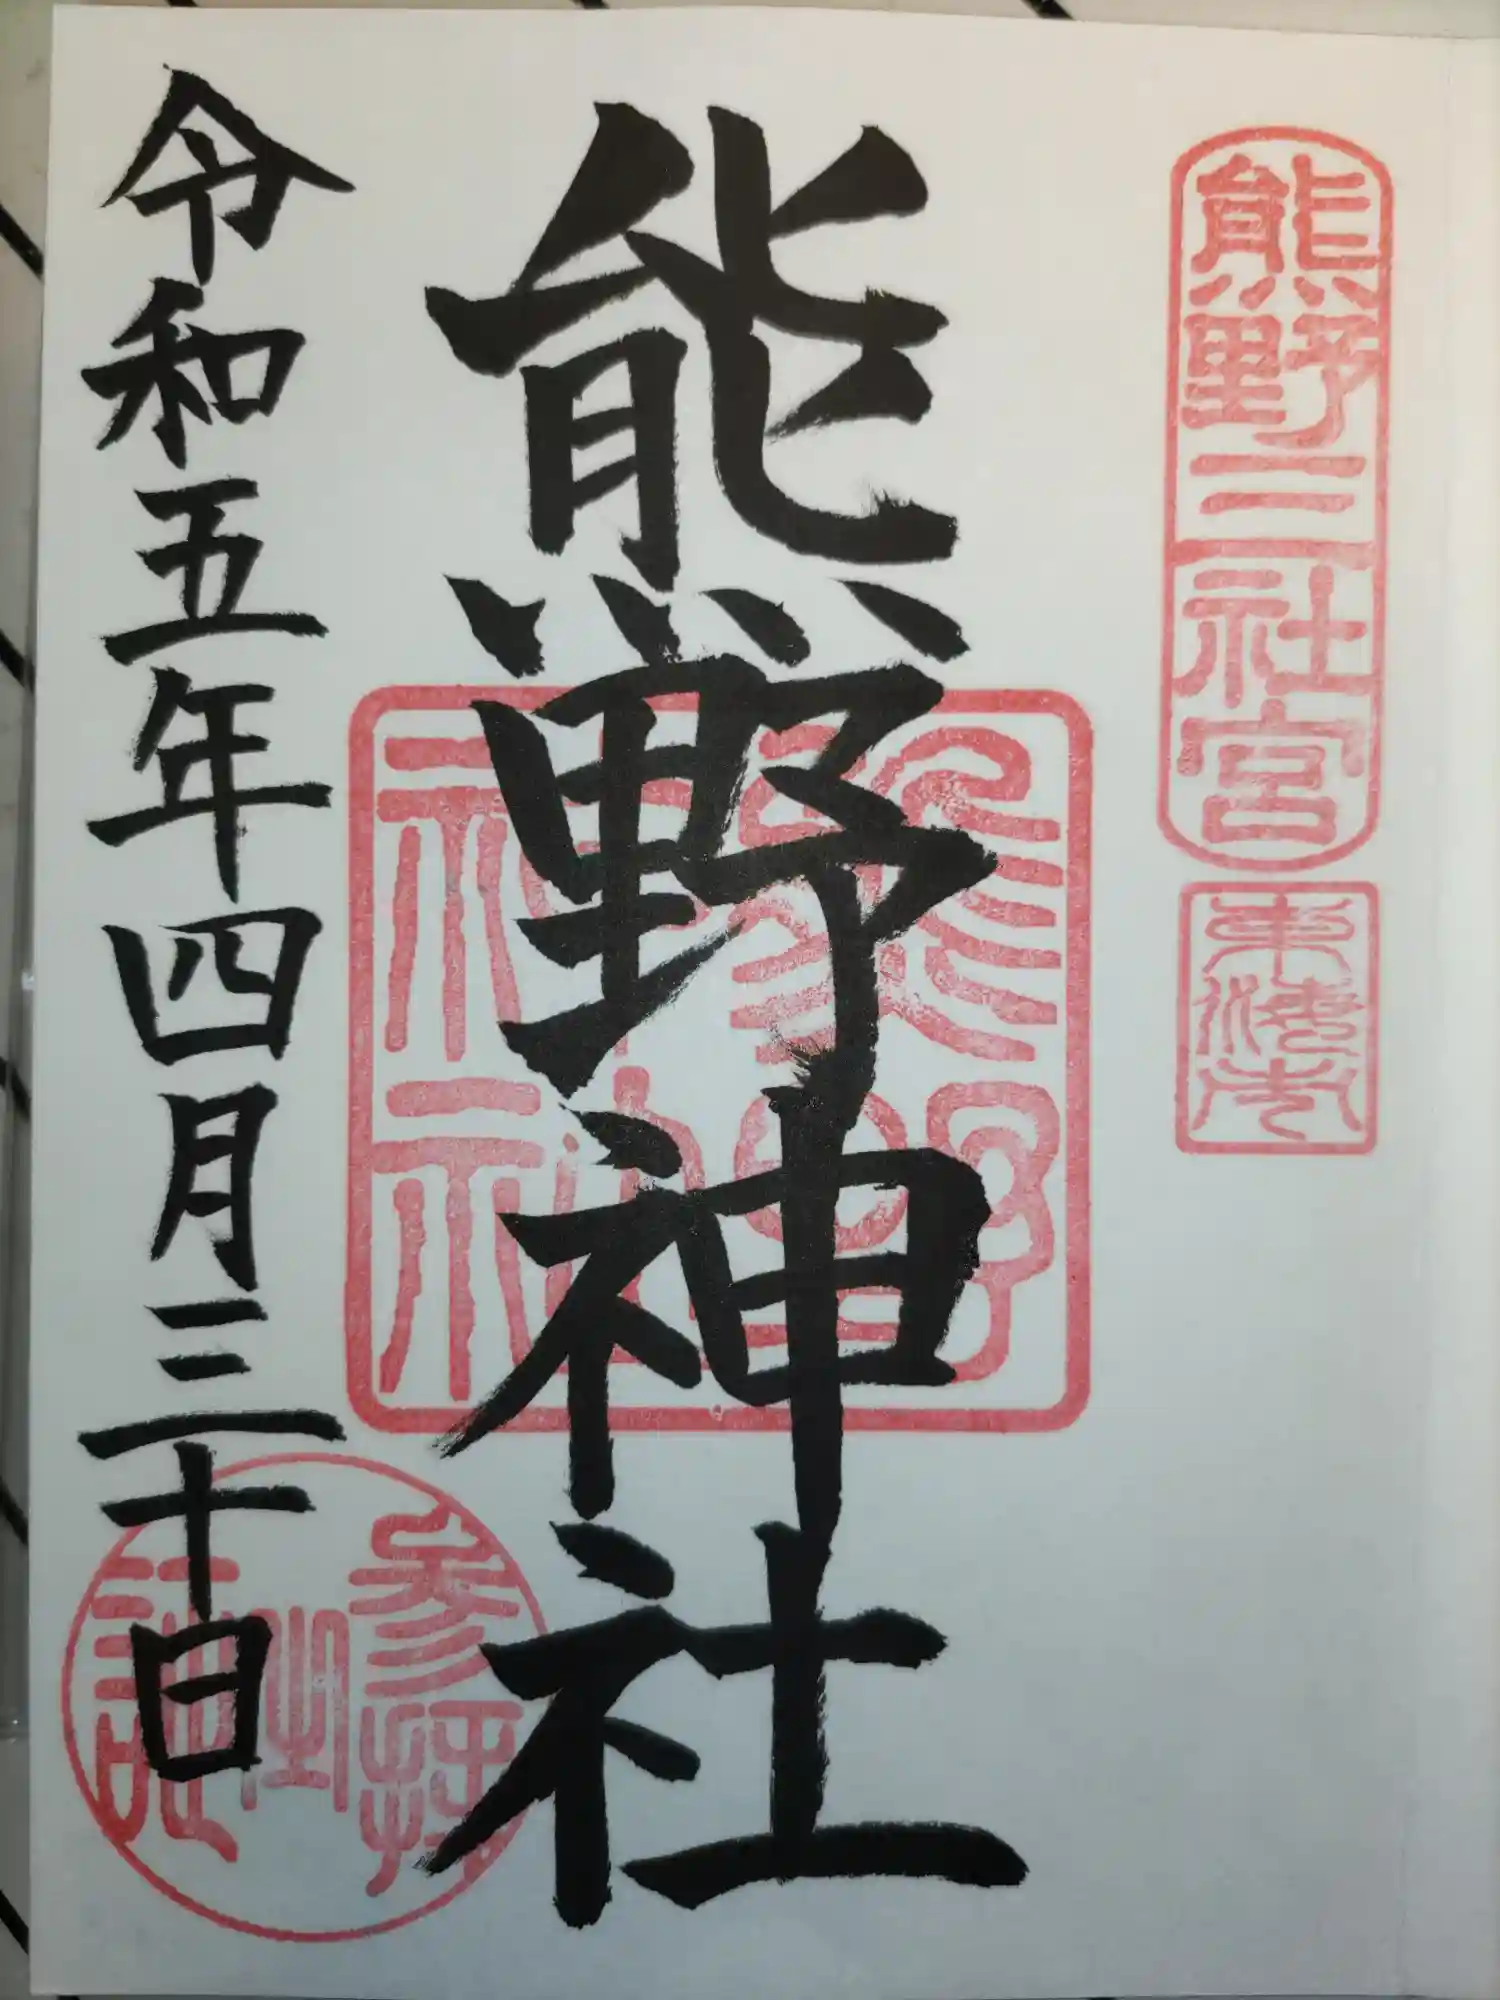 熊野三社宮
東海市
熊野神社
熊野神社
令和五年四月三十日
参拝之証